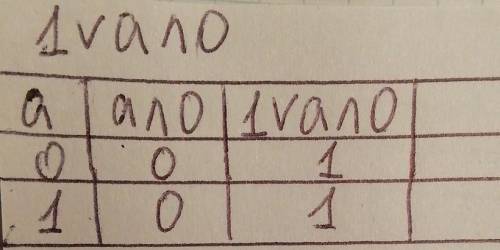 1 ∨ a ∧ 0
a a ∧ 0 1 ∨ a ∧ 0
0 0 1
1 0 1